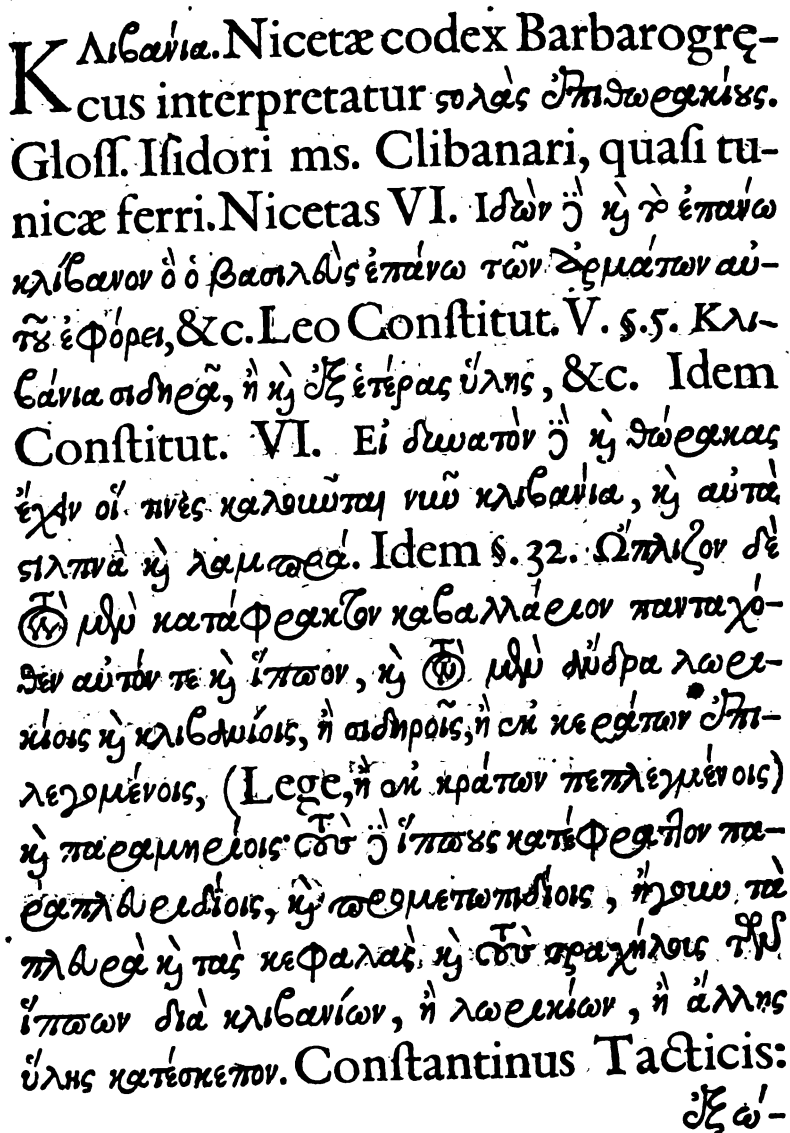 Κλιβανία. Nicetæ codex Barbarogrę-
cus interpretatur ϛολὰς ἐπιθωρακίους.
Gloſſ. Iſidori ms. Clibanari, quaſi tu-
nicæ ferri. Nicetas VI. Ιδὼν ἢ καὶ τὸ ἐπανώ
κλίβανον ὃ ὁ βασιλεὺς ἐπάνω τῶν ἁρμάτων αὐ-
τοῦ ἐφόρει, &c. Leo Conſtitut. V. §. 5. Κλι-
βάνια σιδηρᾶ, ἢ καὶ ἐξ ἑτέρας ὕλης, &c. Idem
Conſtitut. VI. Εἰ δυνατὸν ἢ καὶ θώρακας
ἔχειν οἵ τινὲς καλοῦνται νῦν κλιβανία, καὶ αὐτὰ
ϛιλπνὰ καὶ λαμπρά. Idem §. 32. Ὥπλιζον δὲ
τὸν μὲν κατάφρακτον καβαλλάριον πανταχό-
θεν αὐτόν τε καὶ ἵππον, καὶ τὸν μὲν ἄνδρα λωρι-
κίοις καὶ κλιβανίοις, ἢ σιδηροῖς, ἢ ἐκ κεράτων ἐπι-
λεγομένοις, (Lege, ἢ ἐκ κράτων πεπλεγμένοις)
καὶ παραμηρίοις· τοὺς ἢ ἵππους κατέφραττον πα-
ραπλευριδίοις, καὶ προμετωπιδίοις, ἤγουν τὰ
πλευρὰ καὶ τὰς κεφαλὰς, καὶ τοὺς τραχήλοις τῶν
ἵππων διὰ κλιβανίων, ἢ λωρικίων, ἢ ἄλλης
ὕλης κατέσκεπον. Conſtantinus Tacticis:
ἐξω-